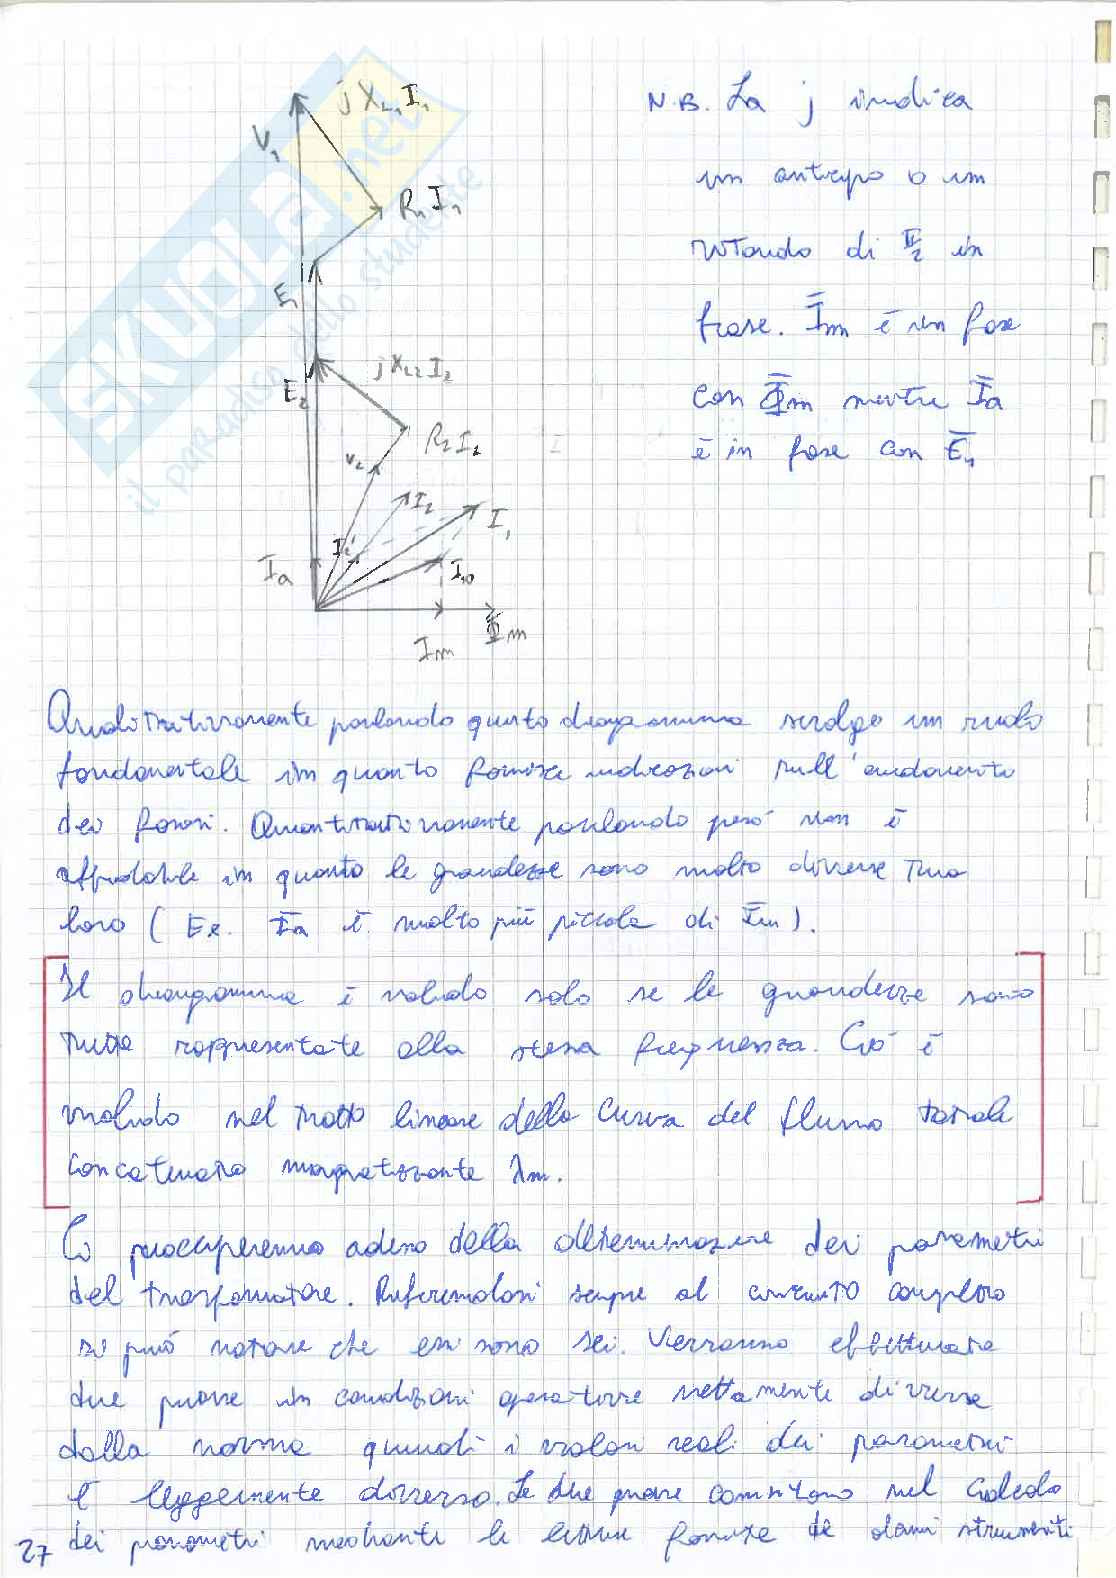 V₁
j X_L1 I₁
R₁ I₁
E₁
E₂
j X_L2 I₂
R₂ I₂
V₂
I₂
I₂'
I₁
I_a
I₁₀
I_m
Φ_m
N.B. La j indica
un anticipo o un
ritardo di π/2 in
fase. I̅m è in fase
con Φ̅m mentre I̅a
è in fase con E̅₁
Qualitativamente parlando questo diagramma svolge un ruolo
fondamentale in quanto fornisce indicazioni sull'andamento
dei fasori. Quantitativamente parlando però non è
affidabile in quanto le grandezze sono molto diverse tra
loro (Es. I̅a è molto più piccola di I̅m).
Il diagramma è valido solo se le grandezze sono
tutte rappresentate alla stessa frequenza. Ciò è
valido nel tratto lineare della curva del flusso totale
concatenato magnetizzante λm.
Ci preoccuperemo adesso della determinazione dei parametri
del trasformatore. Riferendoci sempre al circuito completo
si può notare che essi sono sei. Verranno effettuate
due prove in condizioni operative nettamente diverse
dalla norma quindi i valori reali dei parametri
è leggermente diverso. Le due prove consistono nel calcolo
dei parametri mediante le letture fornite da alcuni strumenti
27
SKUOLA.net
il paradiso dello studente